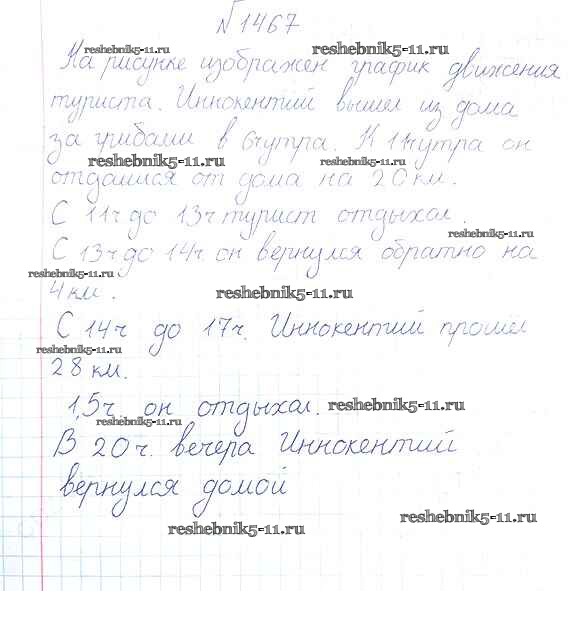 №1467
reshebnik5-11.ru
reshebnik5-11.ru
На рисунке изображен график движения
туриста. Иннокентий вышел из дома
за грибами в 6ч утра. К 11ч утра он
reshebnik5-11.ru
reshebnik5-11.ru
отдалился от дома на 20 км.
С 11ч до 13ч турист отдыхал.
reshebnik5-11.ru
С 13ч до 14ч он вернулся обратно на
reshebnik5-11.ru
4 км.
reshebnik5-11.ru
С 14ч до 17ч. Иннокентий прошел
reshebnik5-11.ru
28 км.
1,5ч. он отдыхал.
reshebnik5-11.ru
reshebnik5-11.ru
В 20ч. вечера Иннокентий
вернулся домой
reshebnik5-11.ru
reshebnik5-11.ru